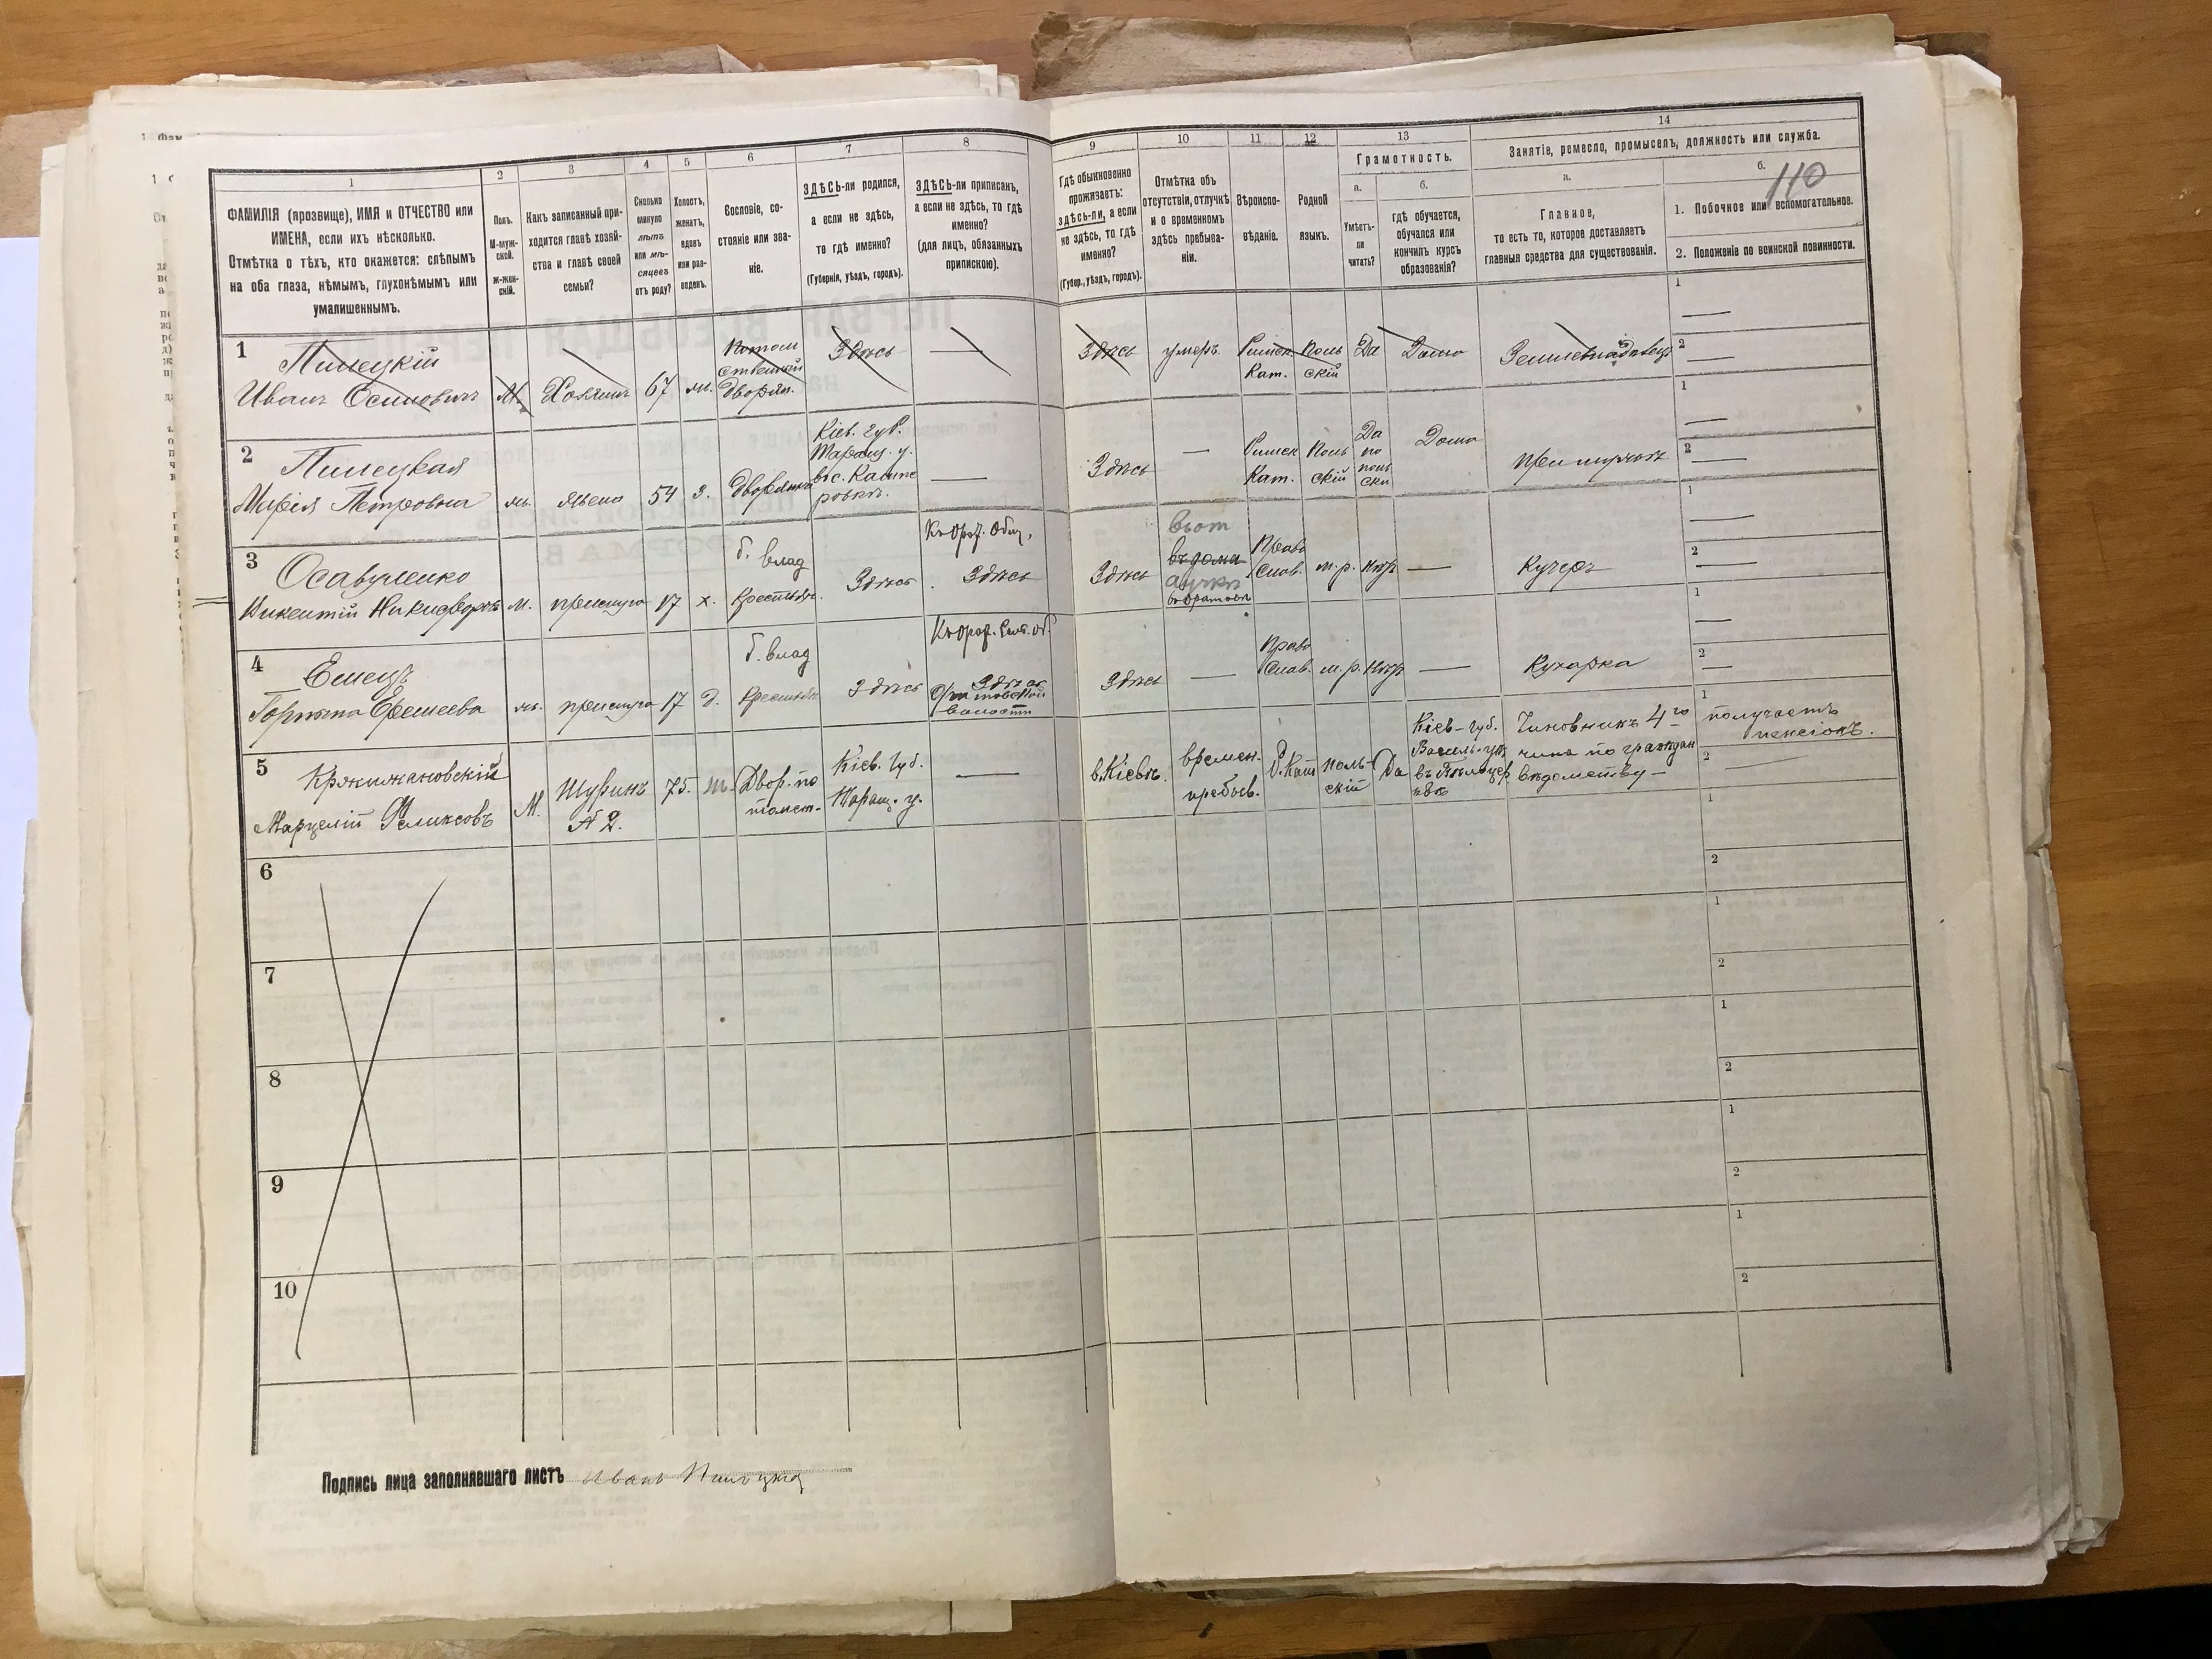 110
1
ФАМИЛІЯ (прозвище), ИМЯ и ОТЧЕСТВО или
ИМЕНА, если ихъ нѣсколько.
Отмѣтка о тѣхъ, кто окажется: слѣпымъ
на оба глаза, нѣмымъ, глухонѣмымъ или
умалишеннымъ.
2
Полъ.
М-муж-
ской.
Ж-жен-
скій.
3
Какъ записанный при-
ходится главѣ хозяй-
ства и главѣ своей
семьи?
4
Сколько
минуло
лѣтъ
или мѣ-
сяцевъ
отъ роду?
5
Холостъ,
женатъ,
вдовъ
или раз-
веденъ.
6
Сословіе, со-
стояніе или зва-
ніе.
7
ЗДѢСЬ-ли родился,
а если не здѣсь,
то гдѣ именно?
(Губернія, уѣздъ, городъ).
8
ЗДѢСЬ-ли приписанъ,
а если не здѣсь, то гдѣ
именно?
(для лицъ, обязанныхъ
припискою).
9
Гдѣ обыкновенно
проживаетъ:
здѣсь-ли, а если
не здѣсь, то гдѣ
именно?
(Губер., уѣздъ, городъ).
10
Отмѣтка объ
отсутствіи, отлучкѣ
и о временномъ
здѣсь пребыва-
ніи.
11
Вѣроиспо-
вѣданіе.
12
Родной
языкъ.
13
Грамотность.
а.
Умѣетъ-
ли
читать?
б.
гдѣ обучается,
обучался или
кончилъ курсъ
образованія?
14
Занятіе, ремесло, промыселъ, должность или служба.
а.
Главное,
то есть то, которое доставляетъ
главныя средства для существованія.
б.
1. Побочное или вспомогательное.
2. Положеніе по воинской повинности.
1
Пилецкій
Иванъ Осиповичъ
М.
Хозяинъ
67
ж.
Потом
ственный
Дворян.
Здѣсь
—
Здѣсь
умеръ.
Римск
Кат.
Поль
скій
Да
Дома
Землевладѣлецъ
1
—
2
—
2
Пилецкая
Марія Петровна
ж.
Жена
54
з.
Дворянка
Кіев. губ.
Таращ. у.
въ с. Кашпе
ровкѣ.
—
Здѣсь
—
Римск
Кат.
Поль
скій
Да
по
поль
ски
Дома
при мужѣ
1
—
2
—
3
Осавуленко
Викентій Никифоровъ
м.
прислуга
17
х.
б. влад
крестьян.
Здѣсь
Здѣсь
Здѣсь
Право
слав.
м.р.
Нѣтъ
—
Кучеръ
1
—
2
—
4
Емецъ
Горпына Еремеева
ж.
прислуга
17
д.
б. влад
крестьян
Здѣсь
Здѣсь
волости
Здѣсь
—
Право
слав.
м.р.
Нѣтъ
—
Кухарка
1
—
2
—
5
Кржижановскій
Марцелій Феликсовъ
М.
Шуринъ
№ 2.
75.
Двор. по
томст.
Кіев. Губ.
Таращ. у.
—
в. Кіевѣ.
времен.
пребыв.
Р. Кат
поль-
скій
Да
Кіев. губ.
Чиновникъ 4го
чина по граждан
вѣдомству —
1
получаетъ
пенсіонъ.
2
—
6
1
2
7
1
2
8
1
2
9
1
2
10
1
2
Подпись лица заполнявшаго листъ Иванъ Пилецкій